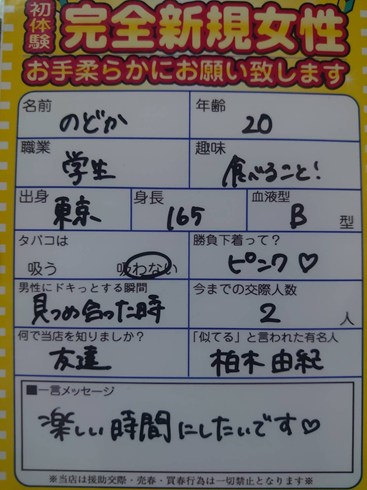 初体験
完全新規女性
お手柔らかにお願い致します
名前
のどか
年齢
20
職業
学生
趣味
食べること!
出身
東京
身長
165
血液型
B 型
タバコは
吸う 吸わない
勝負下着って?
ピンク♡
男性にドキっとする瞬間
見つめ合った時
今までの交際人数
2 人
何で当店を知りましか?
友達
「似てる」と言われた有名人
柏木由紀
■一言メッセージ
楽しい時間にしたいです♡
※当店は援助交際・売春・買春行為は一切禁止となります※